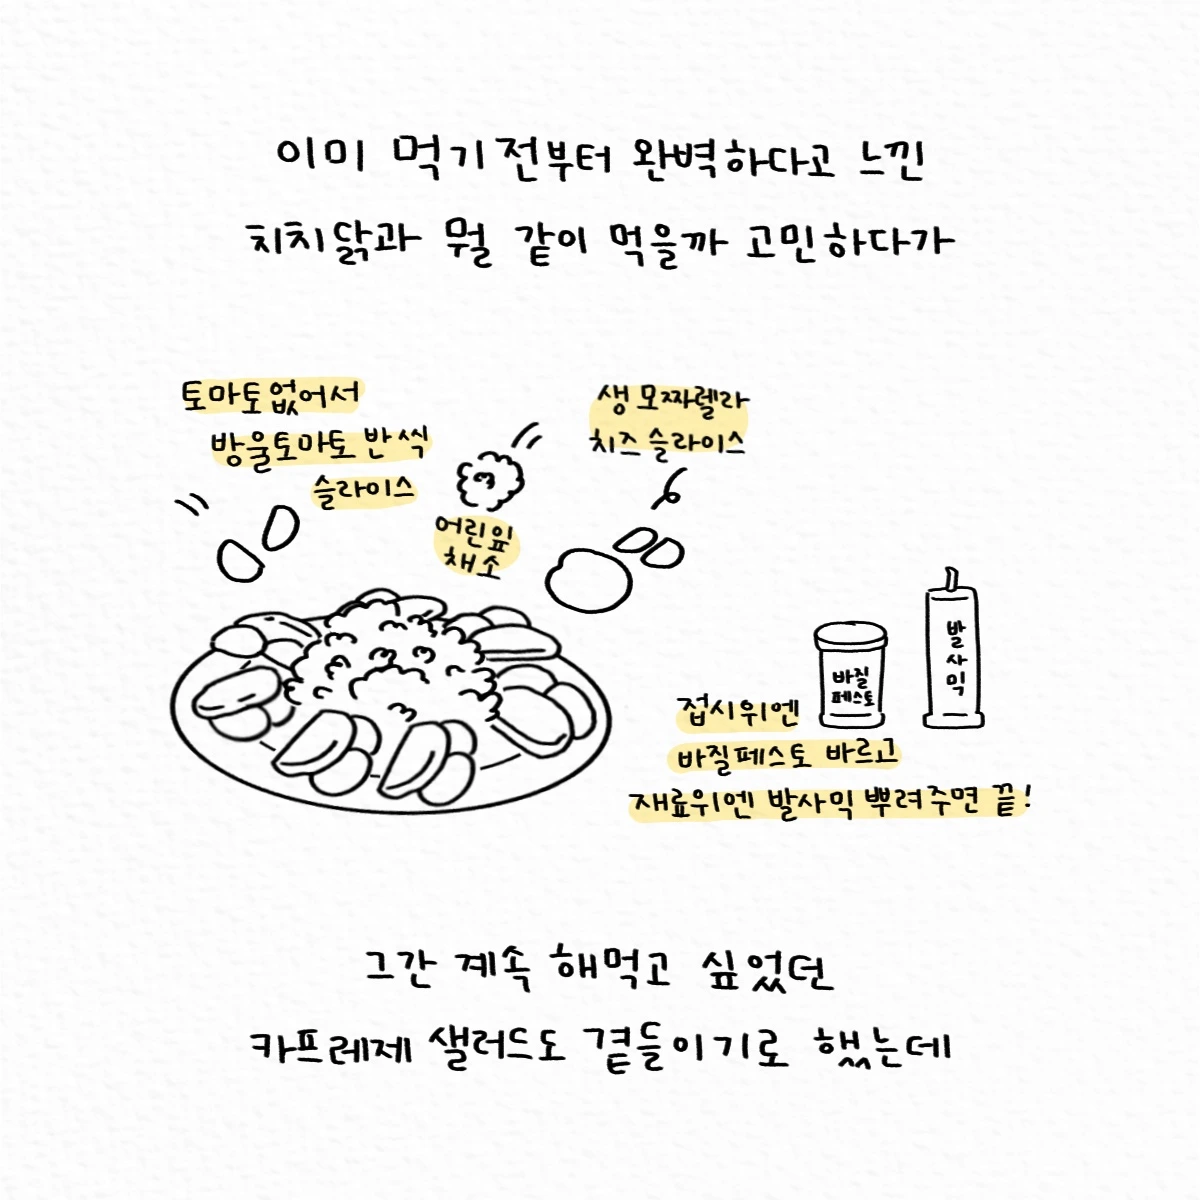 이미 먹기전부터 완벽하다고 느낀
치치닭과 뭘 같이 먹을까 고민하다가
토마토없어서
방울토마토 반씩
슬라이스
어린잎
채소
생 모짜렐라
치즈 슬라이스
바질
페스토
발사믹
접시위엔
바질페스토 바르고
재료위엔 발사믹 뿌려주면 끝!
그간 계속 해먹고 싶었던
카프레제 샐러드도 곁들이기로 했는데